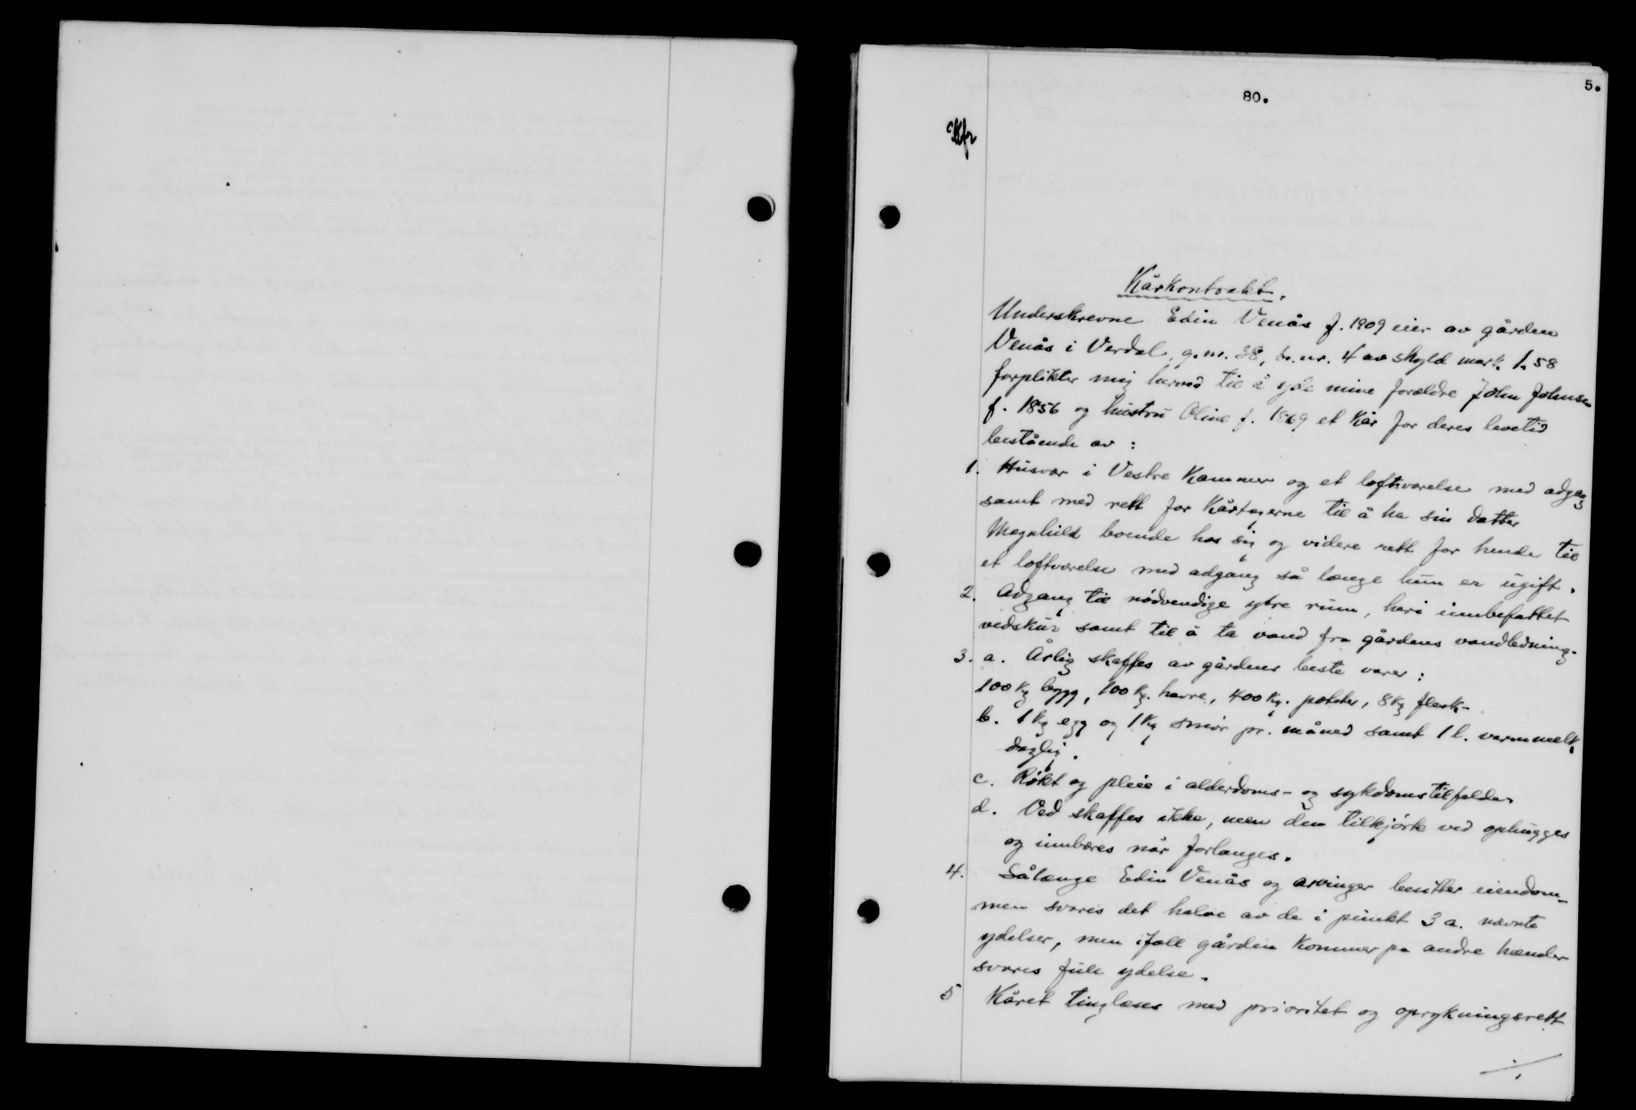 5.
80.
Kårkontrakt.
Underskrevne Edin Venås f. 1909 eier av gården
Venås i Verdal, g.nr. 38, br.nr. 4 av skyld mark 1.58
forplikter mig herved til å yde mine forældre John Johnsen
f. 1856 og hustru Oline f. 1869 et kår for deres levetid
bestående av :
1. Husvær i Vestre Kammer og et loftsværelse med adgang
samt med rett for kårtagerne til å ha sin datter
Magnhild boende hos sig og videre rett for hende til
et loftværelse med adgang så længe hun er ugift.
2. Adgang til nödvendige ytre rum, heri innbefattet
vedskur samt til å ta vand fra gårdens vandledning.
3. a. Årlig skaffes av gårdens beste varer :
100 kg bygg, 100 kg. havre, 400 kg. poteter, 8 kg flesk.
b. 1 kg egg og 1 kg smör pr. måned samt 1 l. varm melk
daglig.
c. Rökt og pleie i alderdoms- og sykdomstilfelder
d. Ved skaffes ikke, men den tilkjörte ved ophugges
og innbæres når forlanges.
4. Sålænge Edin Venås og arvinger besitter eiendom-
men svares det halve av de i punkt 3 a. nævnte
ydelser, men ifall gården kommer på andre hænder
svares full ydelse.
5 Kåret tinglæses med prioritet og oprykningsrett